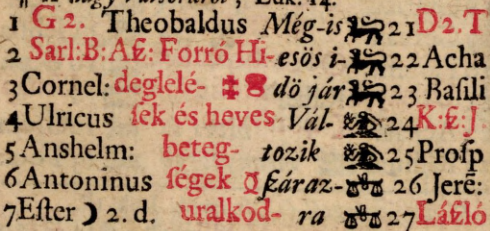 Luk. 14.
1 G 2. Theobaldus Még-is 21 D 2. T
2 Sarl: B: Aſz: Forró Hi- esös i- 22 Acha
3 Cornel: deglelé- dö jár 23 Baſili
4 Ulricus ſek és heves Vál- 24 K: ſz: J.
5 Anshelm: beteg- tozik 25 Proſp
6 Antoninus ſégek ſzáraz- 26 Jerē:
7 Eſter ☽ 2. d. uralkod- ra 27 Láſzló